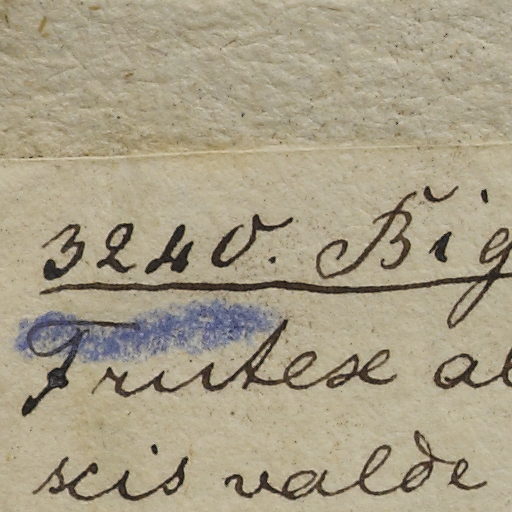 3240. Big
Frutex al
scis valde